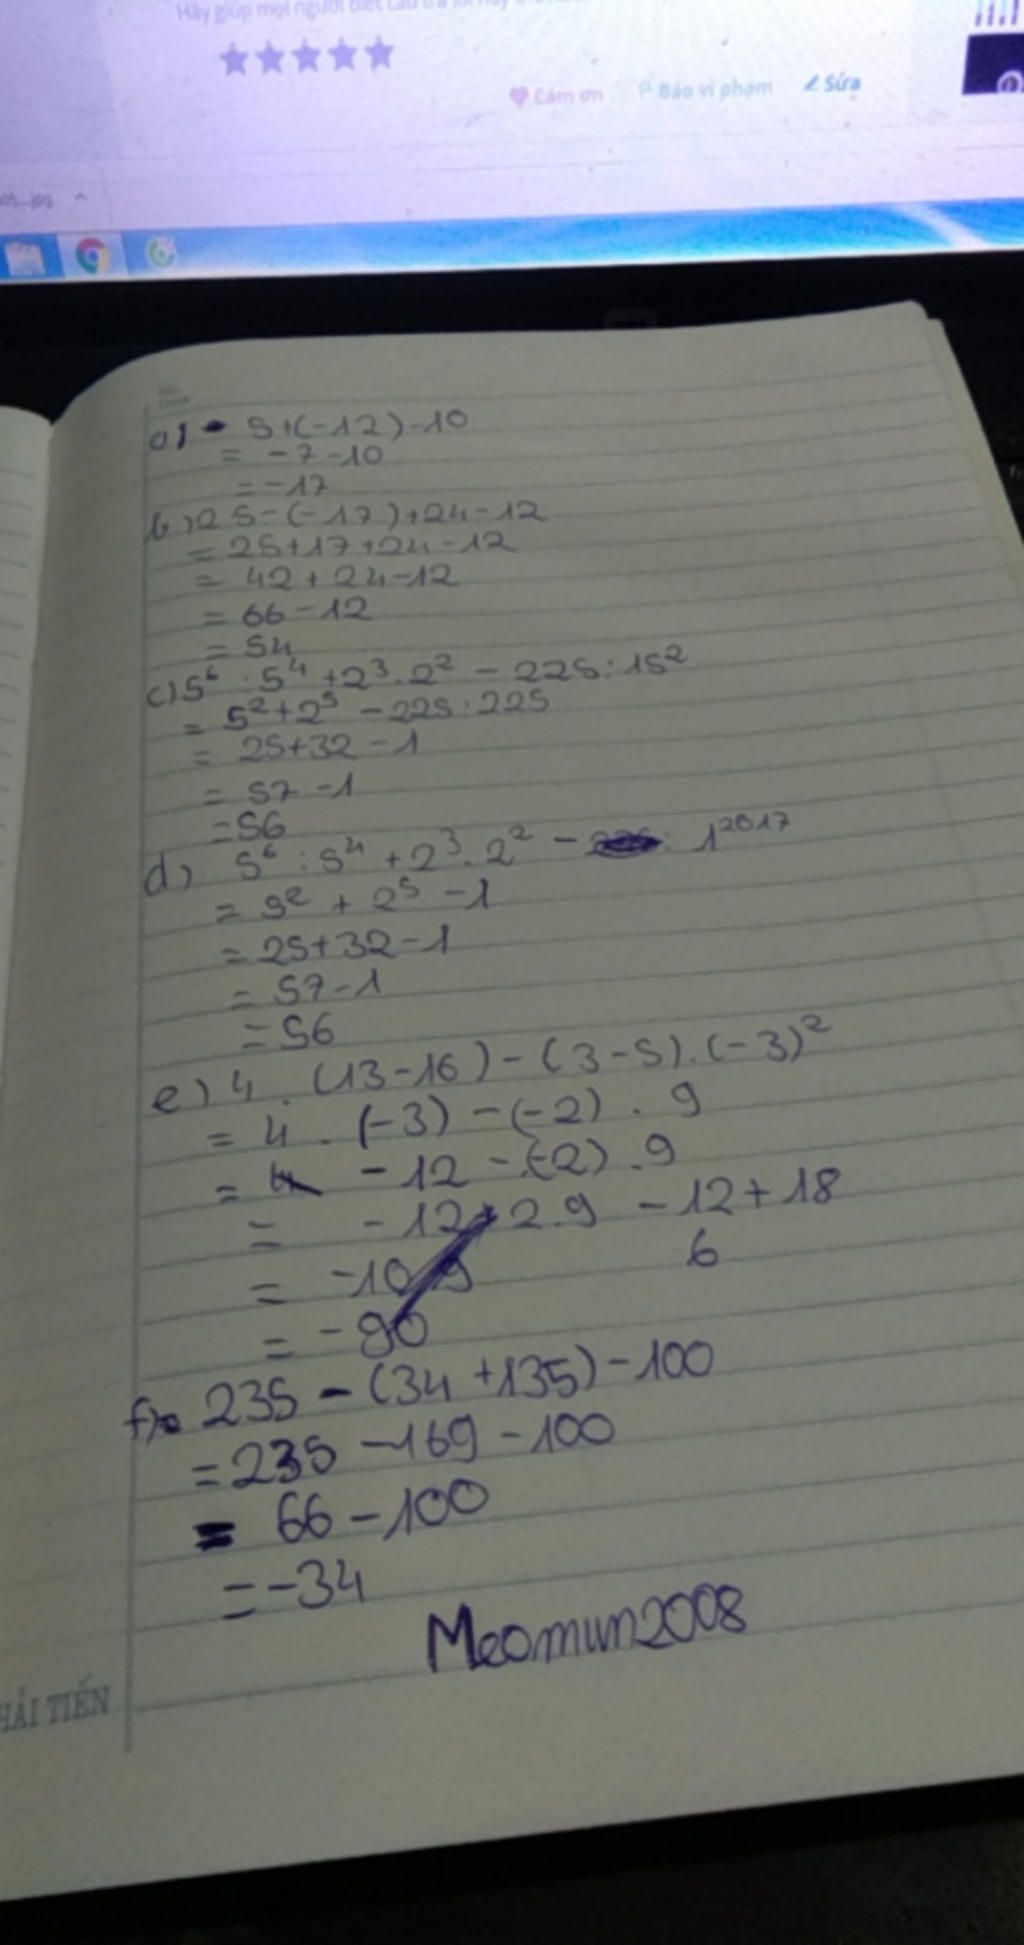 ★★★★★
Cảm ơn Báo vi phạm Sửa
a) 5+(-12)-10
= -7-10
= -17
b) 25-(-17)+24-12
= 25+17+24-12
= 42+24-12
= 66-12
= 54
c) 5⁶ : 5⁴ + 2³.2² - 225:15²
= 5²+2⁵ - 225:225
= 25+32-1
= 57-1
= 56
d) 5⁶ : 5⁴ + 2³.2² - 1²⁰¹⁷
= 5² + 2⁵ - 1
= 25+32-1
= 57-1
= 56
e) 4.(13-16)-(3-5).(-3)²
= 4.(-3)-(-2).9
= -12-(-2).9
= -12+2.9 -12+18
= -10.9 6
= -90
f) 235-(34+135)-100
= 235-169-100
= 66-100
= -34
Meomun2008
HẢI TIẾN